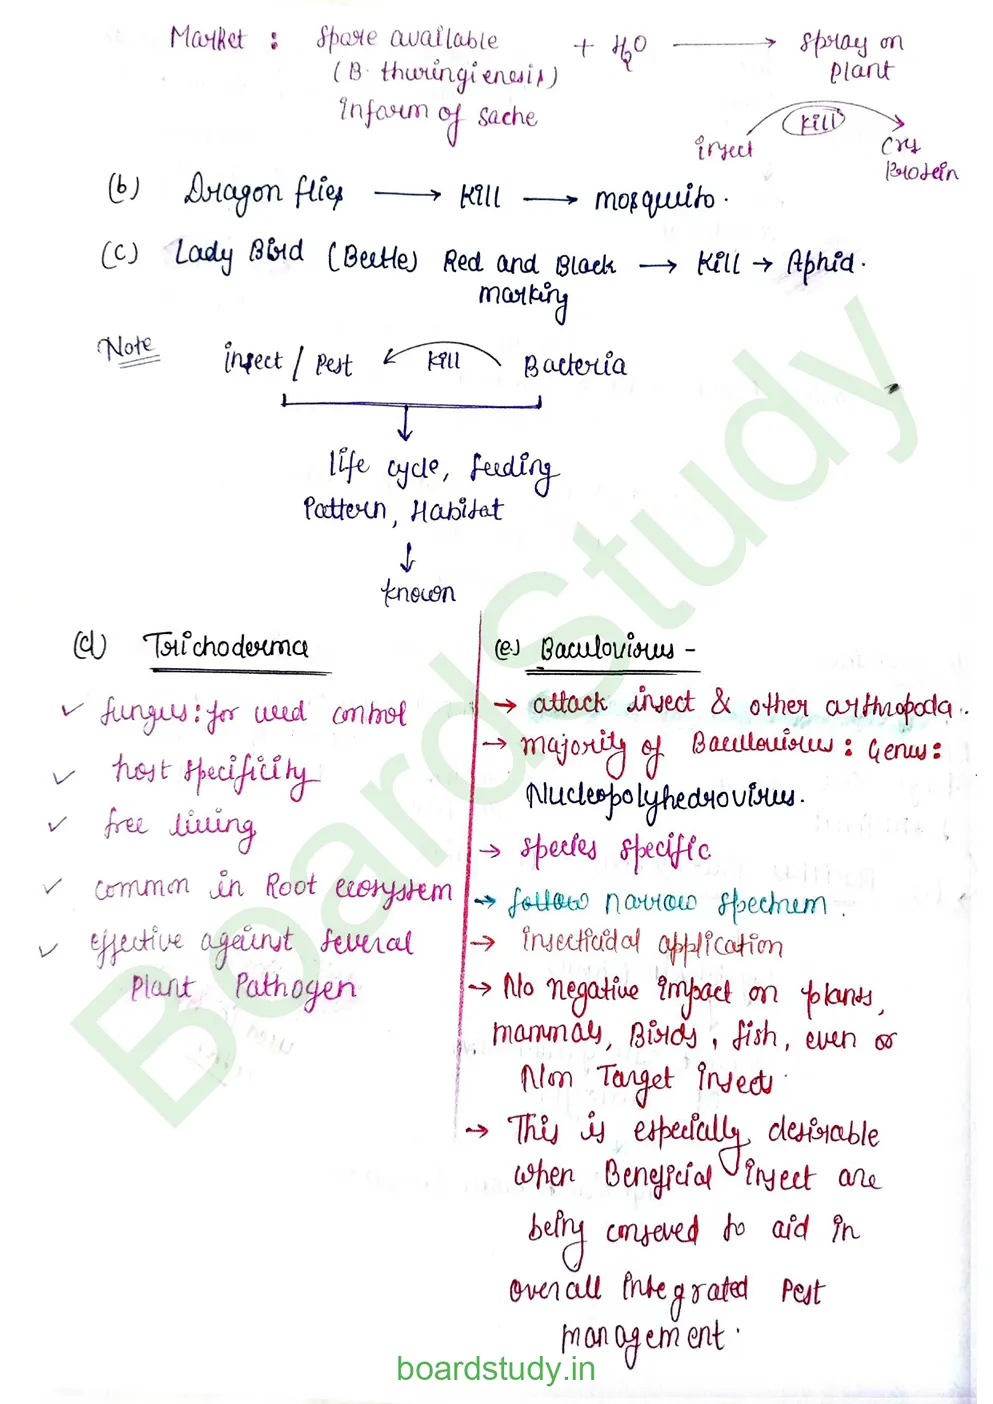 Market : Spore available + H2O → Spray on
(B. thuringienesis) plant
inform of sache
insect kill Cry
Protein
(b) Dragon flies → kill → mosquito.
(c) Lady Bird (Beetle) Red and Black → kill → Aphid.
marking
Note
insect / Pest kill Bacteria
life cycle, feeding
Pattern, Habitat
↓
known
(d) Trichoderma
✓ fungus : for weed control
✓ host specificity
✓ free living
✓ common in Root ecosystem
✓ effective against several
plant Pathogen
(e) Baculovirus -
→ attack insect & other arthropoda.
→ majority of Baculovirus : Genus :
Nucleopolyhedrovirus.
→ species specific
→ follow narrow spectrum.
→ insecticidal application
→ No negative impact on plants,
mammals, Birds, fish, even or
Non Target insects.
→ This is especially desirable
when Beneficial insect are
being conseved to aid in
overall integrated Pest
management.
BoardStudy
boardstudy.in